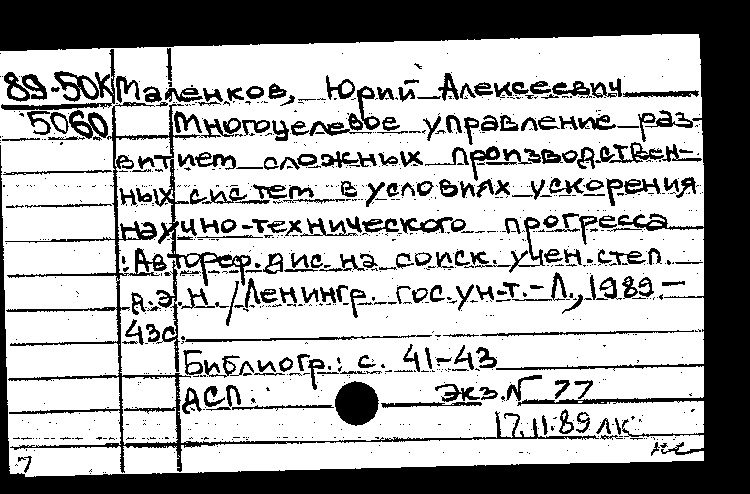 89-50К Маленков, Юрий Алексеевич
5060 Многоцелевое управление раз-
витием сложных производствен-
ных систем в условиях ускорения
научно-технического прогресса
: Автореф. дис. на соиск. учен. степ.
д.э.н. / Ленингр. гос. ун-т. - Л., 1989. -
43с.
Библиогр.: с. 41-43
АСП.: Экз. N 77
17.11.89 лк
7